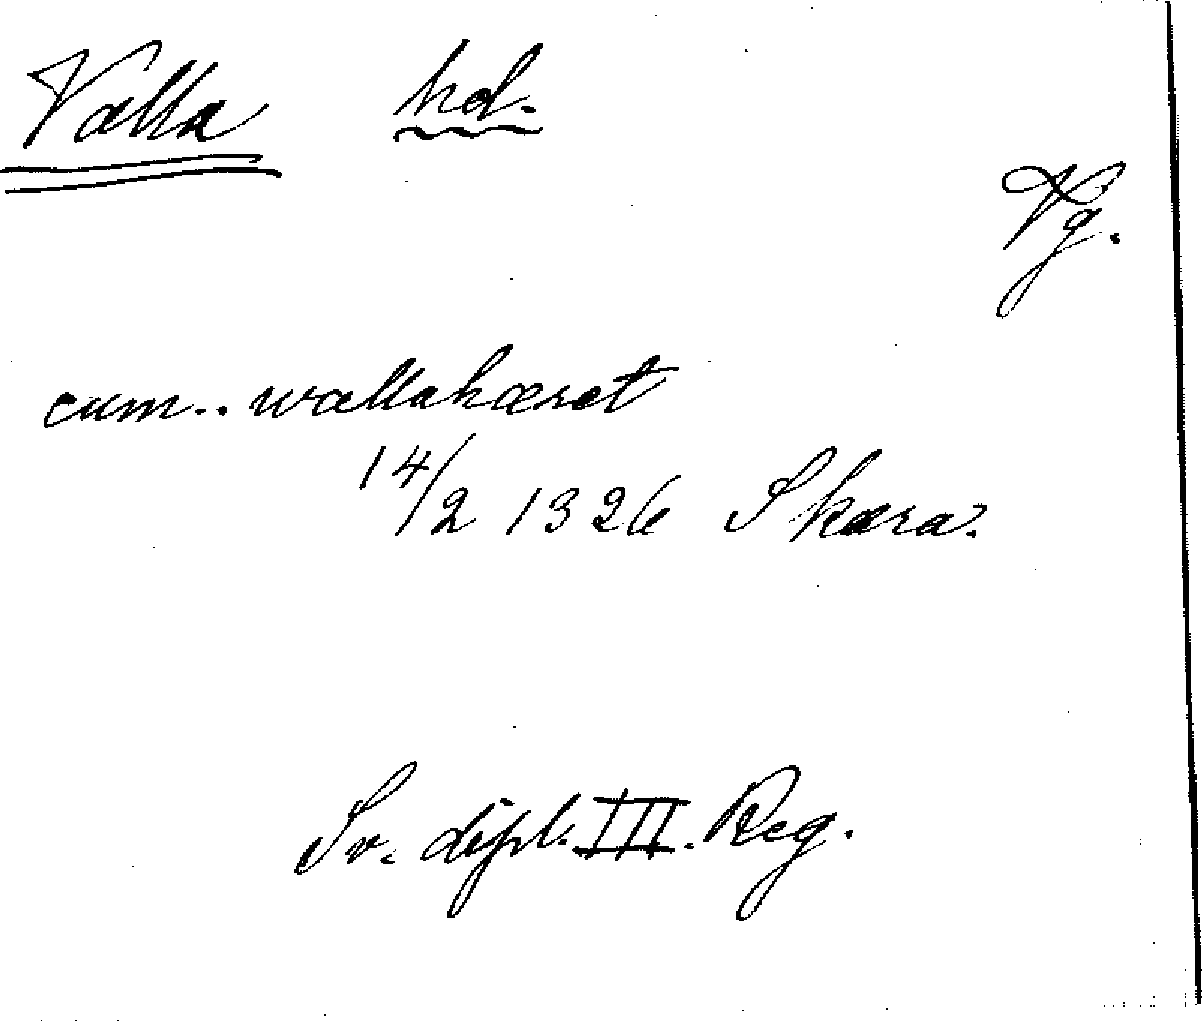 Valla hd.
Vg.
cum.. wallahæret
14/2 1326 Skara.
Sv. dipl. III. Reg.